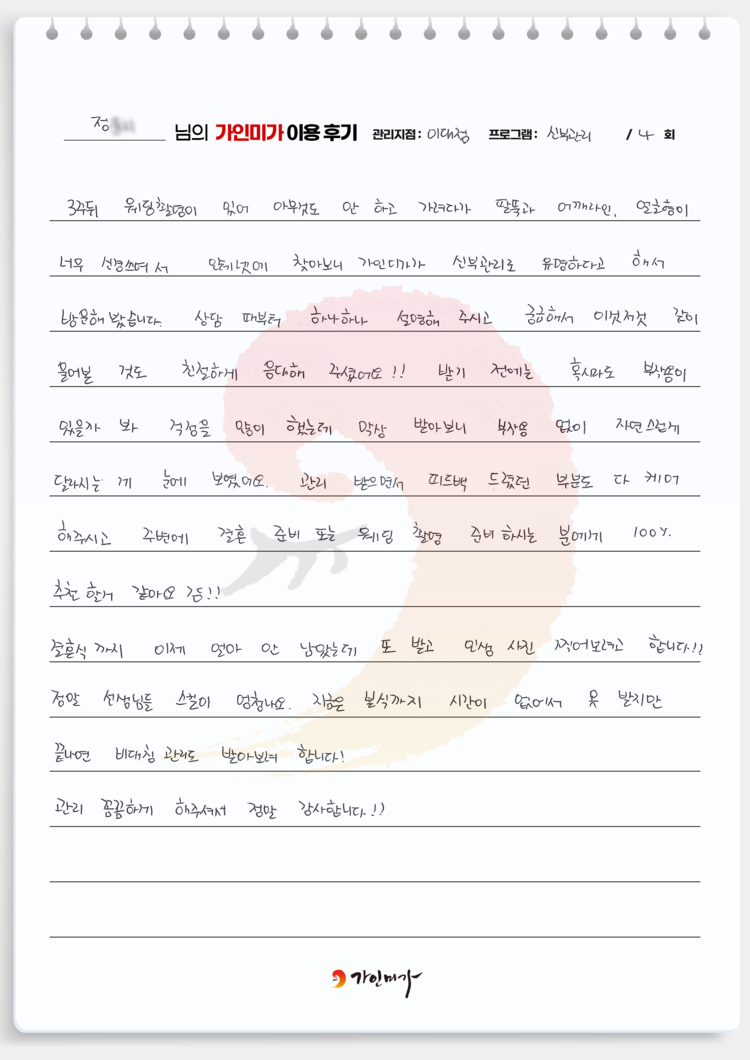 정 님의 가인미가 이용 후기 관리지점: 이대점 프로그램: 신부관리 / 4 회
3주뒤 웨딩촬영이 있어 아무것도 안 하고 가려다가 팔뚝과 어깨라인, 얼굴형이
너무 신경쓰여서 인터넷에 찾아보니 가인미가가 신부관리로 유명하다고 해서
방문해 봤습니다. 상담 때부터 하나하나 설명해 주시고 궁금해서 이것저것 같이
물어본 것도 친절하게 응대해 주셨어요!! 받기 전에는 혹시라도 부작용이
있을까 봐 걱정을 많이 했는데 막상 받아보니 부작용 없이 자연스럽게
달라지는 게 눈에 보였어요. 관리 받으면서 피드백 드렸던 부분도 다 케어
해주시고 주변에 결혼 준비 또는 웨딩 촬영 준비 하시는 분에게 100%
추천 할거 같아요 굳!!
결혼식 까지 이제 얼마 안 남았는데 또 받고 인생 사진 찍어보려고 합니다!!
정말 선생님들 스킬이 엄청나요. 지금은 본식까지 시간이 없어서 못 받지만
끝나면 비대칭 관리도 받아보려 합니다!
관리 꼼꼼하게 해주셔서 정말 감사합니다!)
가인미가